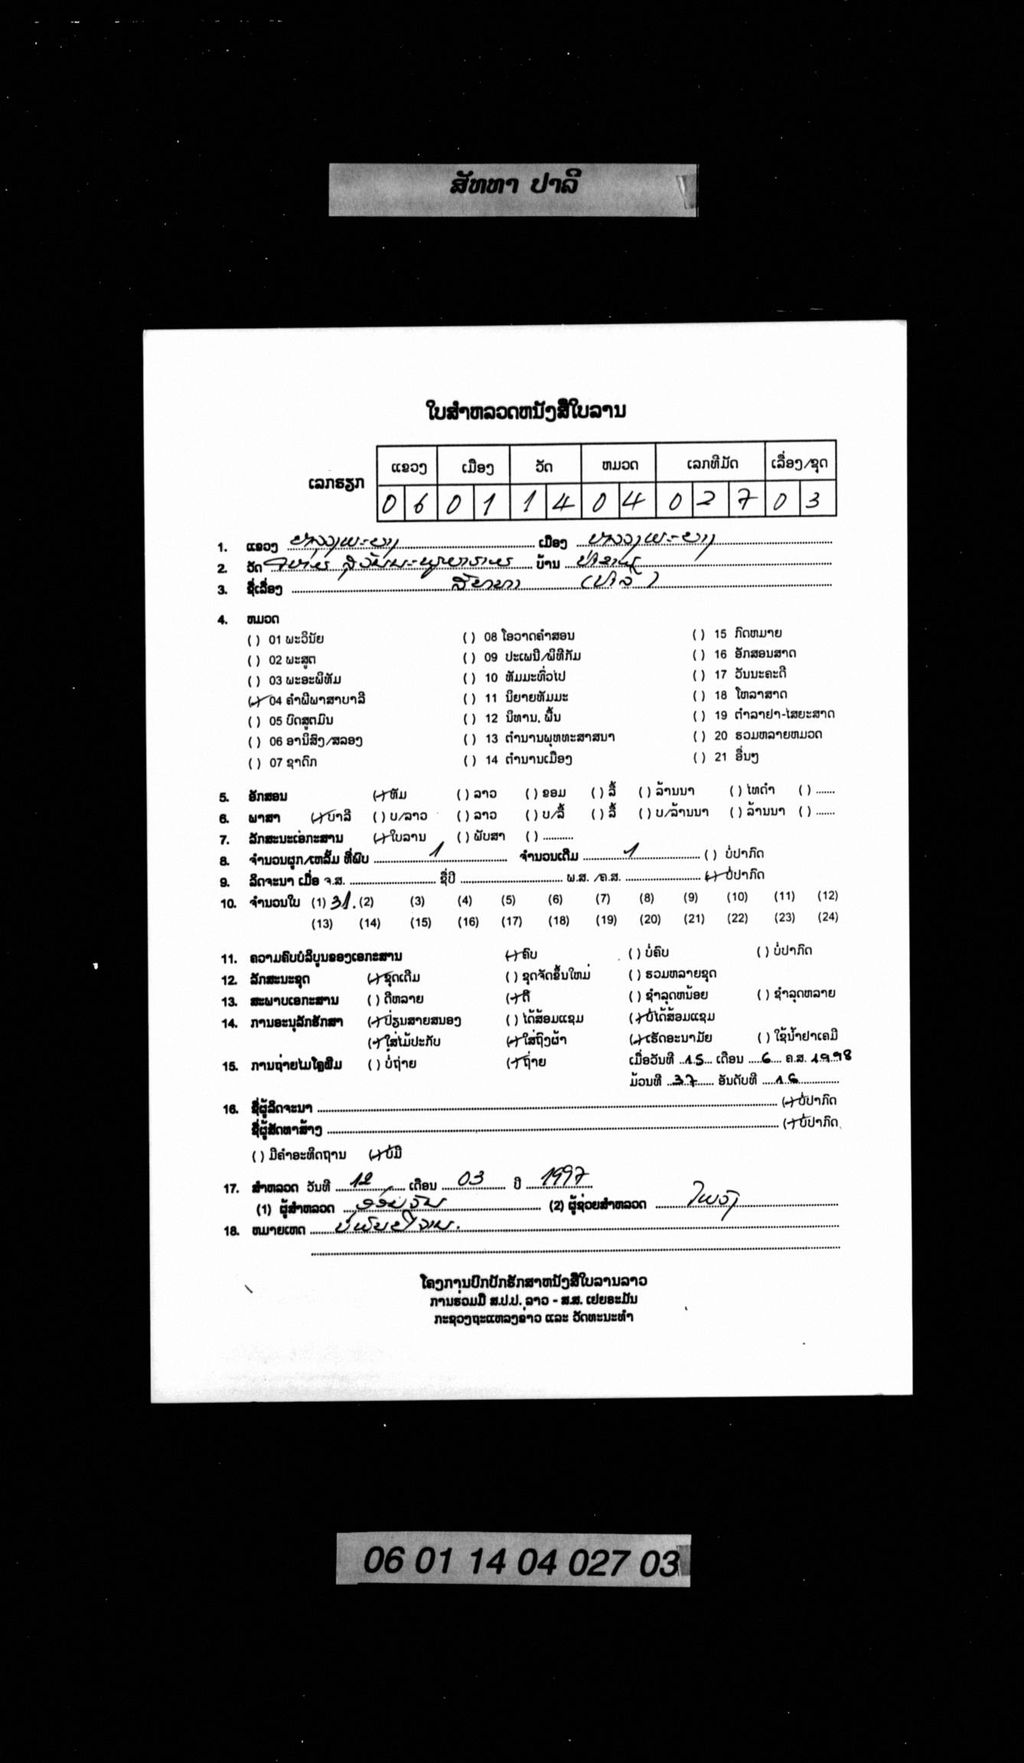 ສັທທາ ປາລິ
ໃບສຳຫລວດຫນັງສືໃບລານ
ເລກຮຽກ ແຂວງ ເມືອງ ວັດ ຫມວດ ເລກທີມັດ ເລື່ອງ/ຊຸດ
0 6 0 1 1 4 0 4 0 2 7 0 3
1. ແຂວງ ຫລວງພະບາງ ເມືອງ ຫລວງພະບາງ
2. ວັດ ບ້ານ
3. ຊື່ເລື່ອງ ສັທທາ (ປາລິ)
4. ຫມວດ
( ) 01 ພະວິນັຍ ( ) 08 ໂອວາດຄຳສອນ ( ) 15 ກົດຫມາຍ
( ) 02 ພະສູດ ( ) 09 ປະເພນີ/ພິທີກັມ ( ) 16 ອັກສອນສາດ
( ) 03 ພະອະພິທັມ ( ) 10 ທັມມະທົ່ວໄປ ( ) 17 ວັນນະຄະດີ
(✓) 04 ຄຳພີພາສາບາລີ ( ) 11 ນິຍາຍທັມມະ ( ) 18 ໂຫລາສາດ
( ) 05 ບົດສູດມົນ ( ) 12 ນິທານ, ພື້ນ ( ) 19 ຕຳລາຢາ-ໄສຍະສາດ
( ) 06 ອານິສົງ/ສລອງ ( ) 13 ຕຳນານພຸທທະສາສນາ ( ) 20 ຮວມຫລາຍຫມວດ
( ) 07 ຊາດົກ ( ) 14 ຕຳນານເມືອງ ( ) 21 ອື່ນໆ
5. ອັກສອນ (✓) ທັມ ( ) ລາວ ( ) ຂອມ ( ) ລື້ ( ) ລ້ານນາ ( ) ໄທດຳ ( ) ......
6. ພາສາ (✓) ບາລີ ( ) ບ/ລາວ ( ) ລາວ ( ) ບ/ລື້ ( ) ລື້ ( ) ບ/ລ້ານນາ ( ) ລ້ານນາ ( ) ......
7. ລັກສະນະເອກະສານ (✓) ໃບລານ ( ) ພັບສາ ( ) ..........
8. ຈຳນວນຜູກ/ເຫລັ້ມ ທີ່ພົບ 1 ຈຳນວນເຕັມ 1 ( ) ບໍ່ປາກົດ
9. ລິດຈະນາ ເມື່ອ ຈ.ສ. ຊື່ປີ ພ.ສ. /ຄ.ສ. (✓) ບໍ່ປາກົດ
10. ຈຳນວນໃບ (1) 31. (2) (3) (4) (5) (6) (7) (8) (9) (10) (11) (12)
(13) (14) (15) (16) (17) (18) (19) (20) (21) (22) (23) (24)
11. ຄວາມຄົບບໍລິບູນຂອງເອກະສານ (✓) ຄົບ ( ) ບໍ່ຄົບ ( ) ບໍ່ປາກົດ
12. ລັກສະນະຊຸດ (✓) ຊຸດເດີມ ( ) ຊຸດຈັດຂຶ້ນໃຫມ່ ( ) ຮວມຫລາຍຊຸດ
13. ສະພາບເອກະສານ ( ) ດີຫລາຍ (✓) ດີ ( ) ຊຳລຸດຫນ້ອຍ ( ) ຊຳລຸດຫລາຍ
14. ການອະນຸລັກຮັກສາ (✓) ປ່ຽນສາຍສນອງ ( ) ໄດ້ສ້ອມແຊມ (✓) ບໍ່ໄດ້ສ້ອມແຊມ
(✓) ໃສ່ໄມ້ປະກັບ (✓) ໃສ່ຖົງຜ້າ (✓) ເຮັດອະນາມັຍ ( ) ໃຊ້ນ້ຳຢາເຄມີ
15. ການຖ່າຍໄມໂຄຼຟິມ ( ) ບໍ່ຖ່າຍ (✓) ຖ່າຍ ເມື່ອວັນທີ 15 ເດືອນ 6 ຄ.ສ. 1998
ມ້ວນທີ 37 ອັນດັບທີ 16
16. ຊື່ຜູ້ລິດຈະນາ (✓) ບໍ່ປາກົດ
ຊື່ຜູ້ສັດທາສ້າງ (✓) ບໍ່ປາກົດ
( ) ມີຄຳອະທິດຖານ (✓) ບໍ່ມີ
17. ສຳຫລວດ ວັນທີ 12 ເດືອນ 03 ປີ 1997
(1) ຜູ້ສຳຫລວດ (2) ຜູ້ຊ່ອຍສຳຫລວດ
18. ຫມາຍເຫດ
ໂຄງການປົກປັກຮັກສາຫນັງສືໃບລານລາວ
ການຮ່ວມມື ສ.ປ.ປ. ລາວ - ສ.ສ. ເຢຍຣະມັນ
ກະຊວງຖະແຫລງຂ່າວ ແລະ ວັດທະນະທຳ
06 01 14 04 027 03